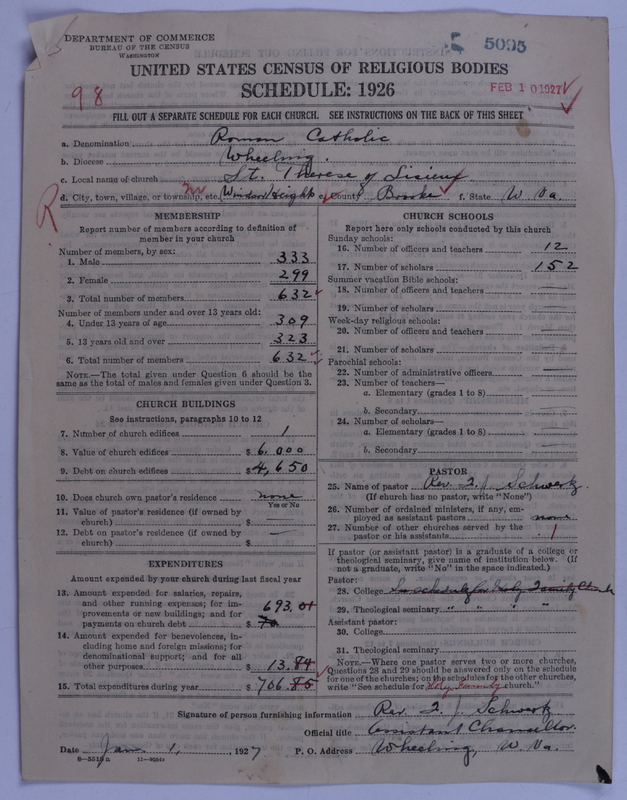 DEPARTMENT OF COMMERCE
BUREAU OF THE CENSUS
WASHINGTON
5095
UNITED STATES CENSUS OF RELIGIOUS BODIES
SCHEDULE: 1926
98
FEB 10 1927
FILL OUT A SEPARATE SCHEDULE FOR EACH CHURCH. SEE INSTRUCTIONS ON THE BACK OF THIS SHEET
a. Denomination Roman Catholic
b. Diocese Wheeling.
c. Local name of church St. Therese of Lisieux
d. City, town, village, or township, etc. Windsor Heights e. County Brooke f. State W. Va.
R
MEMBERSHIP
Report number of members according to definition of member in your church
Number of members, by sex:
1. Male 333
2. Female 299
3. Total number of members 632
Number of members under and over 13 years old:
4. Under 13 years of age 309
5. 13 years old and over 323
6. Total number of members 632
NOTE.—The total given under Question 6 should be the same as the total of males and females given under Question 3.
CHURCH BUILDINGS
See instructions, paragraphs 10 to 12
7. Number of church edifices 1
8. Value of church edifices $6,000
9. Debt on church edifices $4,650
10. Does church own pastor's residence none
Yes or No
11. Value of pastor's residence (if owned by church) $ —
12. Debt on pastor's residence (if owned by church) $ —
EXPENDITURES
Amount expended by your church during last fiscal year
13. Amount expended for salaries, repairs, and other running expenses; for improvements or new buildings; and for payments on church debt $ 693.01
14. Amount expended for benevolences, including home and foreign missions; for denominational support; and for all other purposes $ 13.84
15. Total expenditures during year $ 706.85
CHURCH SCHOOLS
Report here only schools conducted by this church
Sunday schools:
16. Number of officers and teachers 12
17. Number of scholars 152
Summer vacation Bible schools:
18. Number of officers and teachers —
19. Number of scholars —
Week-day religious schools:
20. Number of officers and teachers —
21. Number of scholars —
Parochial schools:
22. Number of administrative officers —
23. Number of teachers—
a. Elementary (grades 1 to 8) —
b. Secondary —
24. Number of scholars—
a. Elementary (grades 1 to 8) —
b. Secondary —
PASTOR
25. Name of pastor Rev. J. Schwertz
(If church has no pastor, write "None")
26. Number of ordained ministers, if any, employed as assistant pastors none
27. Number of other churches served by the pastor or his assistants 1
If pastor (or assistant pastor) is a graduate of a college or theological seminary, give name of institution below. (If not a graduate, write "No" in the space indicated.)
Pastor:
28. College See schedule for Holy Family Church
29. Theological seminary " " " "
Assistant pastor:
30. College
31. Theological seminary
NOTE.—Where one pastor serves two or more churches, Questions 28 and 29 should be answered only on the schedule for one of the churches; on the schedules for the other churches, write "See schedule for Holy Family church."
Signature of person furnishing information Rev. J. Schwertz
Official title Assistant Chancellor.
Date Jan 1, 1927 P. O. Address Wheeling, W. Va.